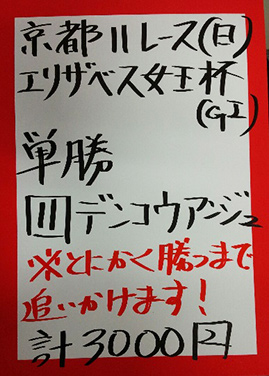 京都11レース(日)
エリザベス女王杯
(GI)
単勝
11デンコウアンジュ
※とにかく勝つまで
追いかけます!
計3000円